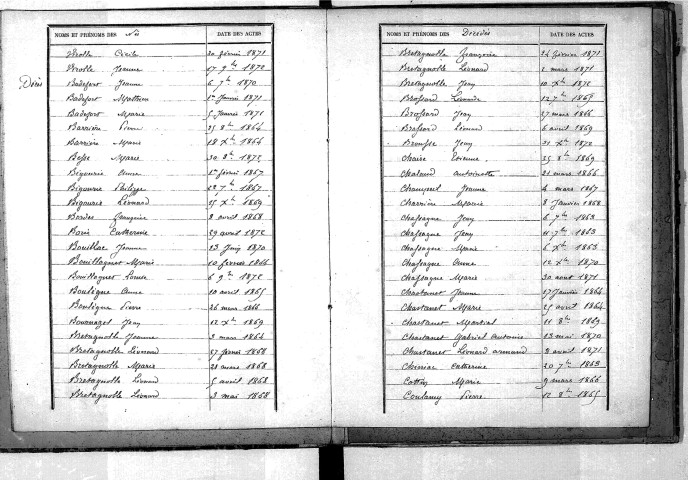 NOMS ET PRÉNOMS DES Nés DATE DES ACTES
Vrolle Cécile 20 février 1871
Vrolle Jeanne 17 9bre 1872
Décès
Badefort Jeanne 6 7bre 1870
Badefort Mathieu 1er Janvier 1871
Badefort Marie 5 Janvier 1871
Barrière Pierre 25 8bre 1864
Barrière Marie 18 Xbre 1864
Besse Marie 30 8bre 1872
Bigourie Anne 1er février 1867
Bigourie Philippe 22 7bre 1867
Bigourie Léonard 25 Xbre 1869
Bordes Françoise 2 avril 1868
Boris Catherine 29 avril 1872
Bouillac Jeanne 23 Juin 1870
Bouillaguet Marie 10 février 1866
Bouillaguet Louise 6 9bre 1872
Boulègue Anne 20 avril 1865
Boulègue Pierre 26 mars 1866
Bournazel Jean 12 Xbre 1869
Bretagnolle Jeanne 3 mars 1864
Bretagnolle Léonard 27 février 1868
Bretagnolle Marie 21 mars 1868
Bretagnolle Léonard 5 avril 1868
Bretagnolle Léonard 3 mai 1868
NOMS ET PRÉNOMS DES Décédés DATE DES ACTES
Bretagnolle Françoise 24 février 1871
Bretagnolle Léonard 2 mars 1871
Bretagnolle Jean 10 Xbre 1872
Brossard Léonarde 12 7bre 1865
Brossard Jean 27 mars 1866
Brossard Léonard 6 avril 1869
Brousse Jean 21 Xbre 1872
Chaize Etienne 25 8bre 1869
Chalaud Antoinette 21 mars 1866
Jeanne 4 mars 1867
Charrière Marie 8 Janvier 1868
Chassagne Jean 6 7bre 1863
Chassagne Jean 11 7bre 1863
Chassagne Marie 6 Xbre 1863
Chassagne Anne 12 Xbre 1870
Chassagne Marie 30 aout 1871
Chastanet Jeanne 17 Janvier 1864
Chastanet Marie 25 avril 1864
Chastanet Martial 11 8bre 1869
Chastanet Gabriel Antoine 13 mai 1870
Chastanet Léonard Armand 2 avril 1871
Catherine 20 7bre 1863
Cottin Marie 9 mars 1866
Coulaud Pierre 12 8bre 1865